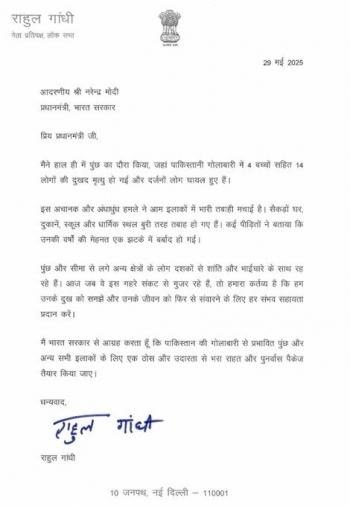 राहुल गांधी
नेता प्रतिपक्ष, लोक सभा
29 मई 2025
आदरणीय श्री नरेन्द्र मोदी
प्रधानमंत्री, भारत सरकार
प्रिय प्रधानमंत्री जी,
मैंने हाल ही में पुंछ का दौरा किया, जहां पाकिस्तानी गोलाबारी में 4 बच्चों सहित 14
लोगों की दुखद मृत्यु हो गई और दर्जनों लोग घायल हुए हैं।
इस अचानक और अंधाधुंध हमले ने आम इलाकों में भारी तबाही मचाई है। सैकड़ों घर,
दुकानें, स्कूल और धार्मिक स्थल बुरी तरह तबाह हो गए हैं। कई पीड़ितों ने बताया कि
उनकी वर्षों की मेहनत एक झटके में बर्बाद हो गई।
पुंछ और सीमा से लगे अन्य क्षेत्रों के लोग दशकों से शांति और भाईचारे के साथ रह
रहे हैं। आज जब वे इस गहरे संकट से गुजर रहे हैं, तो हमारा कर्तव्य है कि हम
उनके दुख को समझें और उनके जीवन को फिर से संवारने के लिए हर संभव सहायता
प्रदान करें।
मैं भारत सरकार से आग्रह करता हूँ कि पाकिस्तान की गोलाबारी से प्रभावित पुंछ और
अन्य सभी इलाकों के लिए एक ठोस और उदारता से भरा राहत और पुनर्वास पैकेज
तैयार किया जाए।
धन्यवाद,
राहुल गांधी
राहुल गांधी
10 जनपथ, नई दिल्ली – 110001